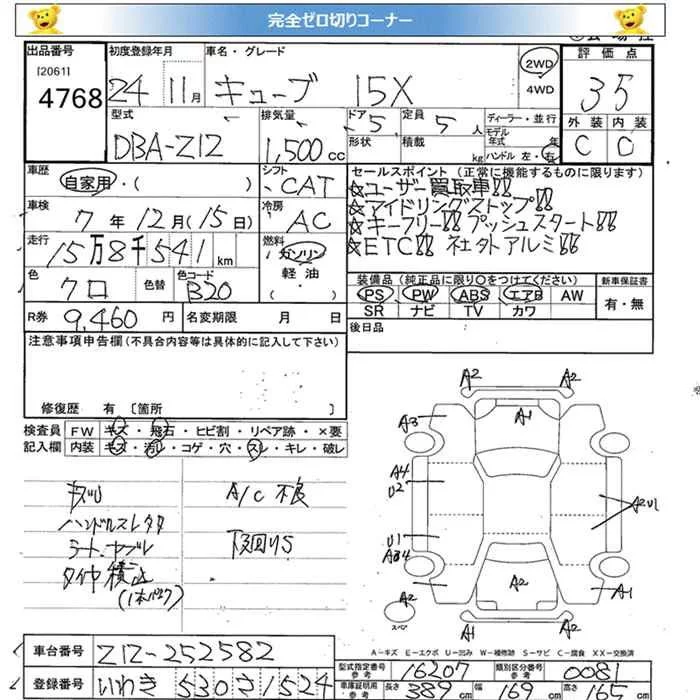 完全ゼロ切りコーナー
出品番号 [2061] 4768
初度登録年月 24 11月
車名・グレード キューブ 15X
2WD
4WD
評価点 35
外装 C 内装 C
型式 DBA-Z12
排気量 1,500 cc
ドア 5 定員 5 人
形状 積載 kg
ディーラー・並行
モデル年式 年
ハンドル 左・右
車歴 自家用・( )
シフト CAT
車検 7年12月(15日)
冷房 AC
走行 15万8千541 km
燃料 ガソリン 軽油 ( )
色 クロ 色替
色コード B20
R券 9,460 円 名変期限 月 日
セールスポイント (正常に機能するものに限ります)
☆ユーザー買取車!!
☆アイドリングストップ!!
☆キーフリー!! プッシュスタート!!
☆ETC!! 社外アルミ!!
装備品 (純正品に限り○をつけてください) 新車保証書
PS PW ABS エアB AW 有・無
SR ナビ TV カワ
後日品
注意事項申告欄(不具合内容等は具体的に記入して下さい)
修復歴 有 [箇所 ]
検査員 FW キズ・飛石・ヒビ割・リペア跡・×要
記入欄 内装 キズ・汚れ・コゲ・穴・スレ・キレ・破レ
A/C 不良
タイヤ積込
(1本パンク)
A2 A2
A1
A3
A4
U2
A2U1
U1
A2
A1
A2
スペア
A2 A2
A-キズ E-エクボ U-凹み W-補修跡 S-サビ C-腐食 XX-交換済
車台番号 Z12-252582
登録番号 いわき 530 さ 1524
型式指定番号 参考 16207 類別区分番号 参考 0081
車庫証明用 参考 長さ 389 cm 幅 169 cm 高さ 165 cm